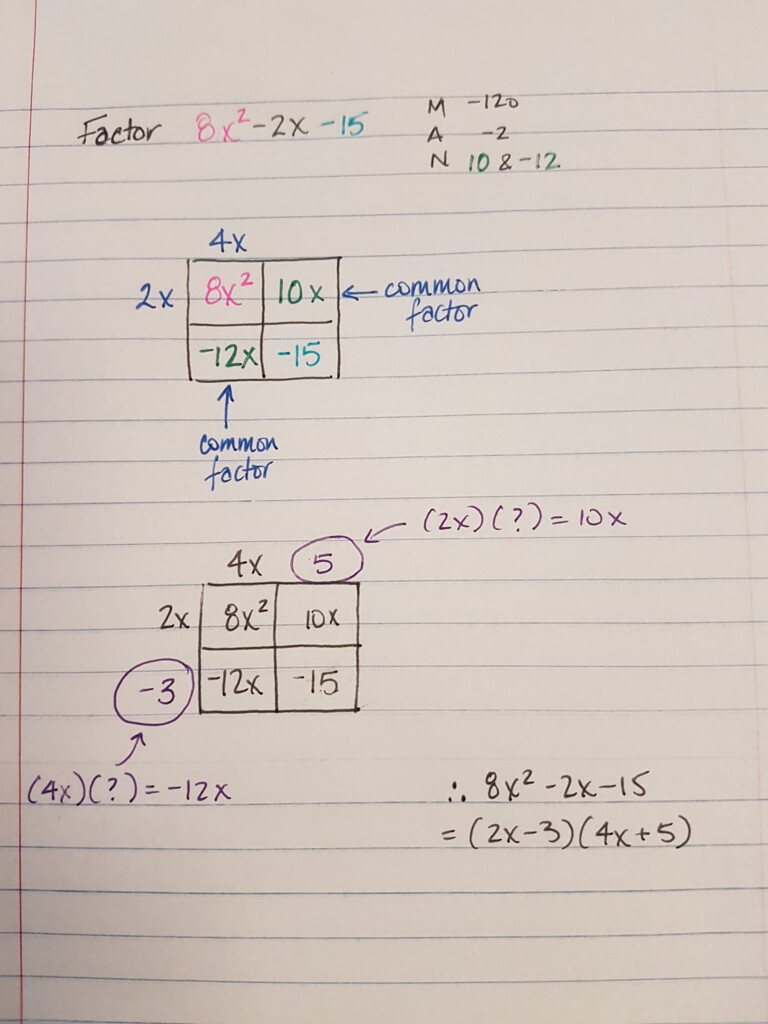 Factor 8x² - 2x - 15
M -120
A -2
N 10 & -12
4x
2x 8x² 10x ← common
factor
-12x -15
common
factor
(2x)(?) = 10x
4x 5
2x 8x² 10x
-3 -12x -15
(4x)(?) = -12x
∴ 8x² - 2x - 15
= (2x - 3)(4x + 5)